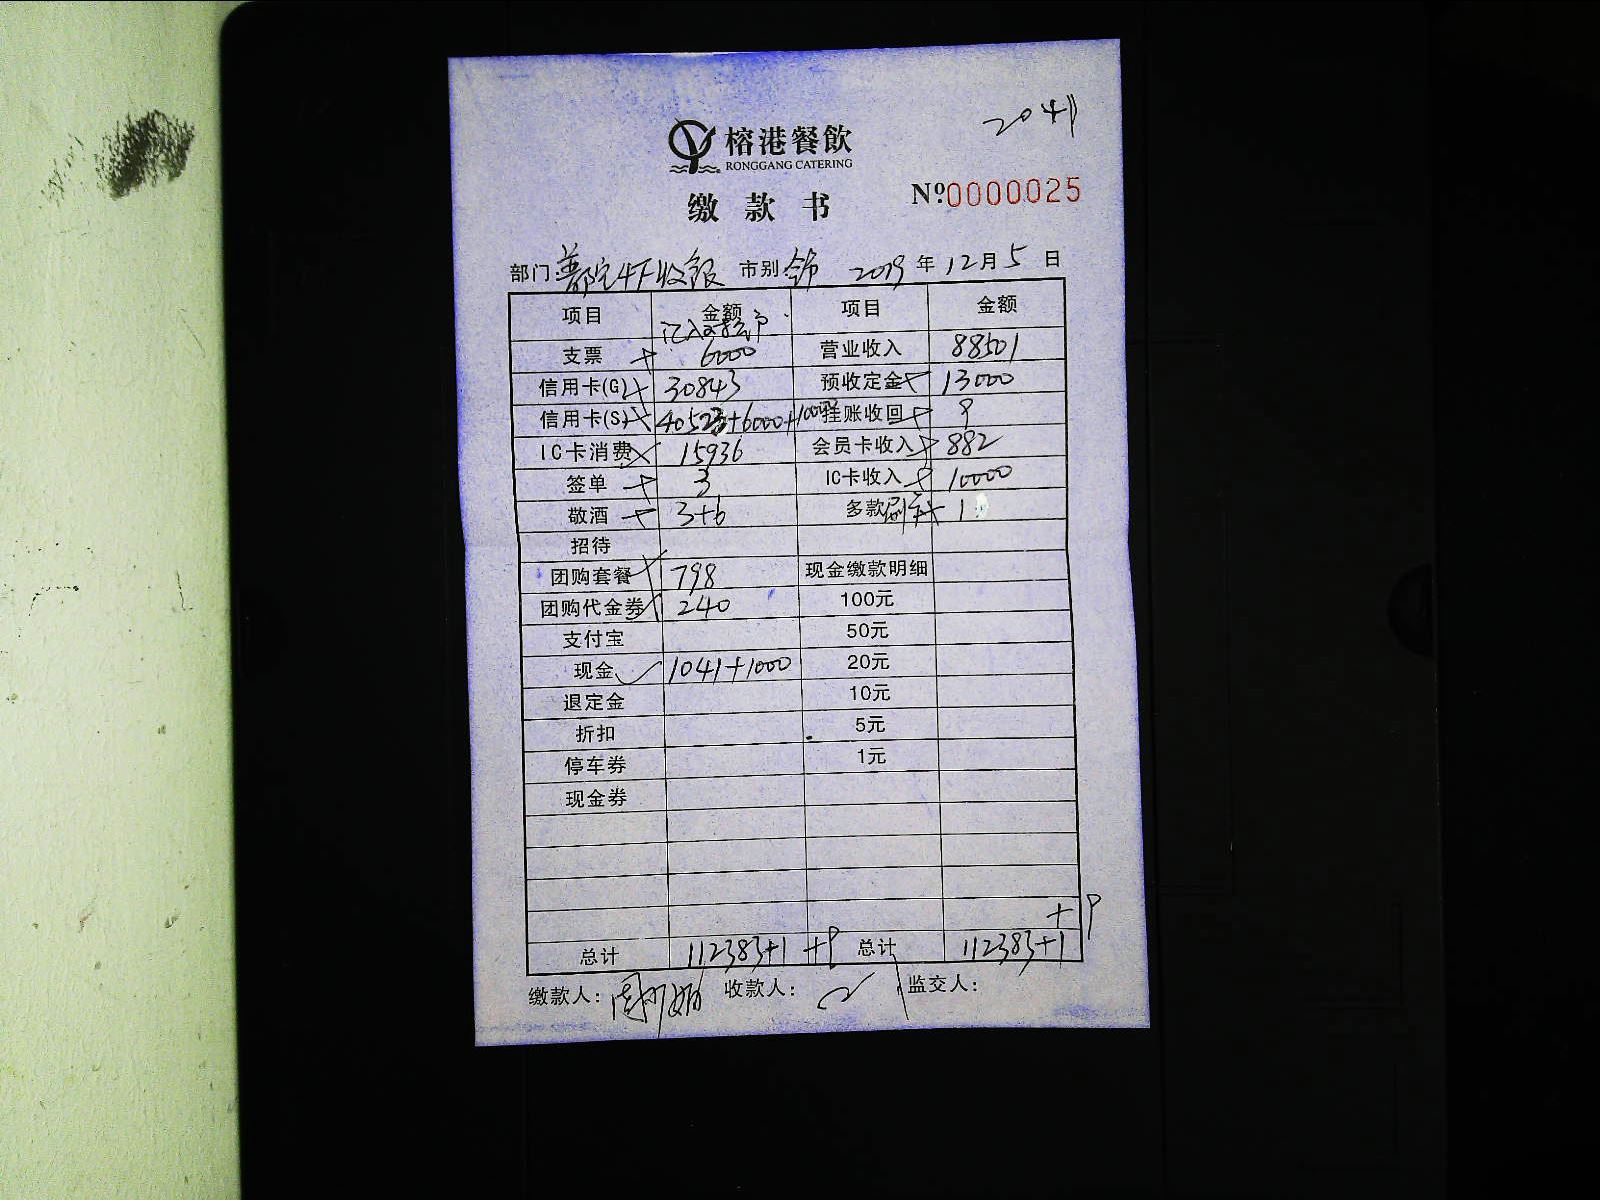 2041
榕港餐飲
RONGGANG CATERING
缴款书
Nº.0000025
部门: 收银 市别: 全市 2019年12月5日
项目 金额 项目 金额
支票 6000 营业收入 88501
信用卡(G) 30843 预收定金 13000
信用卡(S) +6000+ 挂账收回 9
IC卡消费 15936 会员卡收入 882
签单 3 IC卡收入 10000
敬酒 3+6 多款 刷卡 1
招待
团购套餐 798 现金缴款明细
团购代金券 240 100元
支付宝 50元
现金 1041+1000 20元
退定金 10元
折扣 5元
停车券 1元
现金券
+9
总计 112383+1 +9 总计 112383+1
缴款人: 收款人: 监交人: